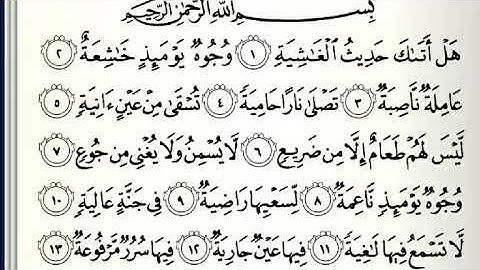 بِسْمِ اللَّهِ الرَّحْمَٰنِ الرَّحِيمِ
هَلْ أَتَىٰكَ حَدِيثُ الْغَٰشِيَةِ ١ وُجُوهٌ يَوْمَئِذٍ خَٰشِعَةٌ ٢
عَامِلَةٌ نَّاصِبَةٌ ٣ تَصْلَىٰ نَارًا حَامِيَةً ٤ تُسْقَىٰ مِنْ عَيْنٍ ءَانِيَةٍ ٥
لَّيْسَ لَهُمْ طَعَامٌ إِلَّا مِن ضَرِيعٍ ٦ لَّا يُسْمِنُ وَلَا يُغْنِي مِن جُوعٍ ٧
وُجُوهٌ يَوْمَئِذٍ نَّاعِمَةٌ ٨ لِّسَعْيِهَا رَاضِيَةٌ ٩ فِي جَنَّةٍ عَالِيَةٍ ١٠
لَّا تَسْمَعُ فِيهَا لَٰغِيَةً ١١ فِيهَا عَيْنٌ جَارِيَةٌ ١٢ فِيهَا سُرُرٌ مَّرْفُوعَةٌ ١٣